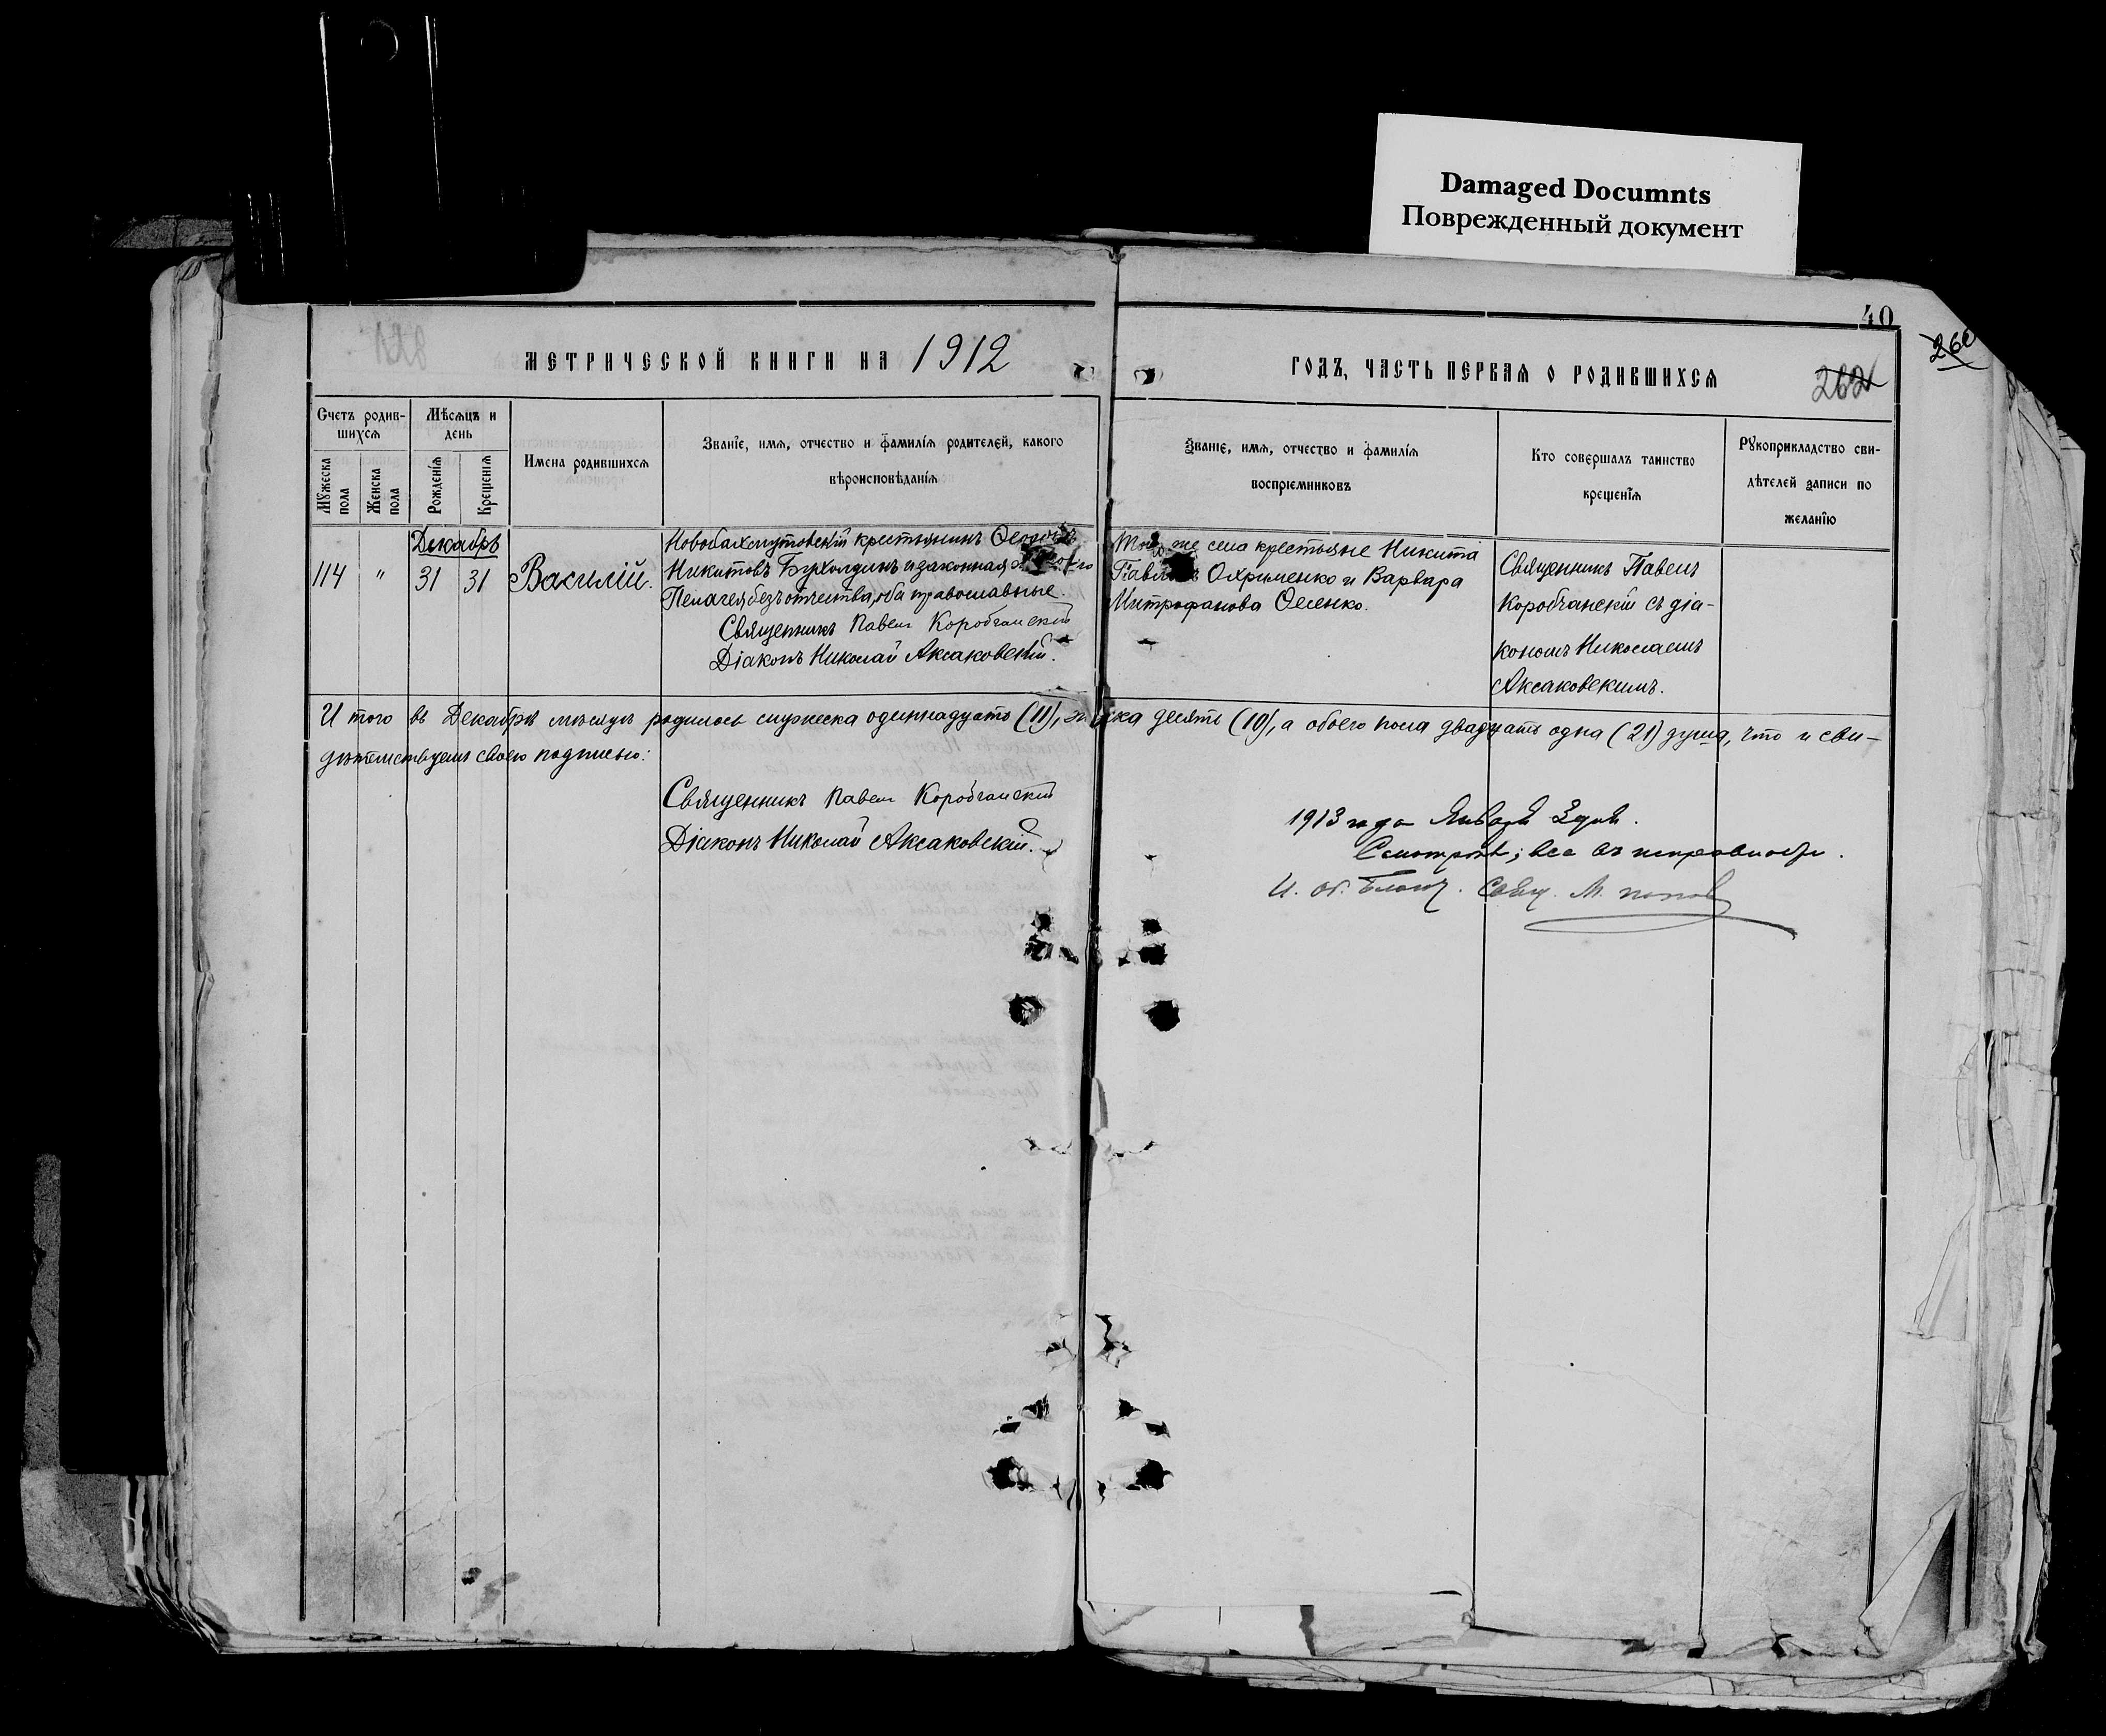 Damaged Documnts
Поврежденный документ
40
МЕТРИЧЕСКОЙ КНИГИ НА 1912
ГОДЪ, ЧАСТЬ ПЕРВАЯ О РОДИВШИХСЯ
262
260
Счетъ родив-
шихся
Мужеска
пола
Женска
пола
Мѣсяцъ и
день
Рожденія
Крещенія
Имена родившихся
Званіе, имя, отчество и фамилія родителей, какого
вѣроисповѣданія
Званіе, имя, отчество и фамилія
воспріемниковъ
Кто совершалъ таинство
крещенія
Рукоприкладство сви-
дѣтелей записи по
желанію
Декабрь
114 " 31 31 Василій.
Новобахмутовскій крестьянинъ
Никитовъ Бухолдинъ и законная
Пелагея безъ отчества, оба православные.
Священникъ Павелъ Коробчанскій
Діаконъ Николай Аксаковскій.
же села крестьяне Никита
Охрименко и Варвара
Митрофанова
Священникъ Павелъ
Коробчанскій съ діа-
кономъ Николаемъ
Аксаковскимъ.
Итого въ Декабрѣ мѣсяцѣ родилось мужеска одиннадцать (11), десять (10), а обоего пола двадцать одна (21) душа, что и сви-
дѣтельствуемъ своею подписью:
Священникъ Павелъ Коробчанскій
Діаконъ Николай Аксаковскій.
1913 года Января 3 дня.
Смотрѣлъ; все въ исправности.
И. об. Благ. Свящ. М. Попов